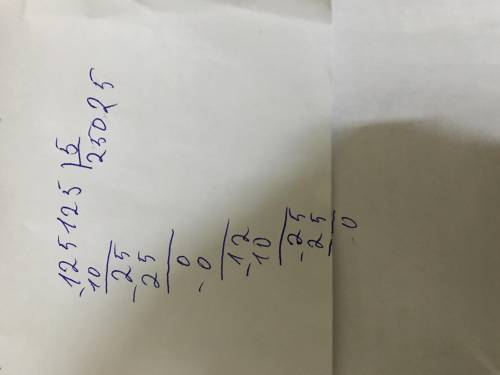 125125 | 5
-10 25025
25
-25
0
-0
12
-10
25
-25
0